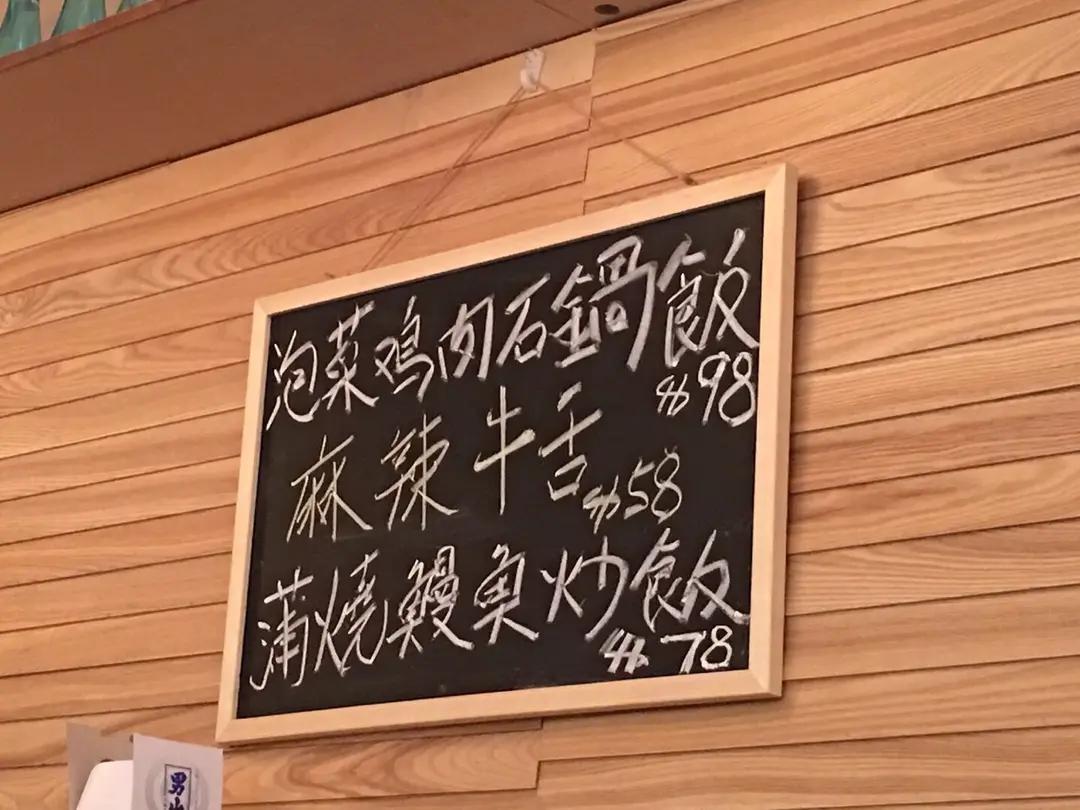 泡菜鸡肉石鍋飯
$98
麻辣牛舌 $58
蒲燒鰻魚炒飯
$78
男山